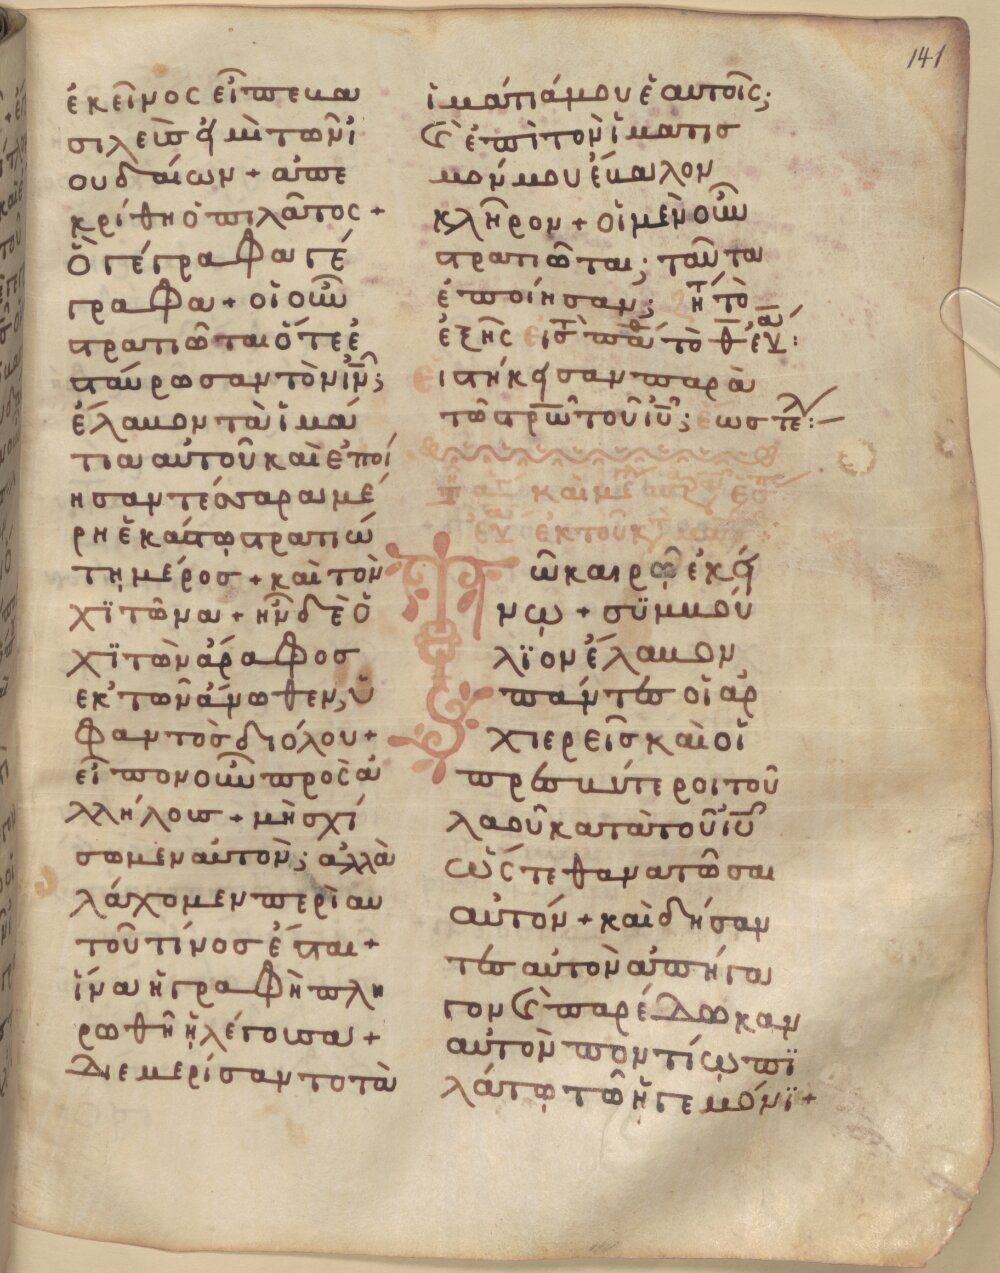 141
ἐκεῖνος εἶπε βα
σιλεύς εἰμι τῶν ἰ
ουδαίων + ἀπε
κρίθη ὁ πιλάτος +
Ὃ γέγραφα γέ
γραφα + οἱ οὖν
στρατιῶται ὅτε ἐ
σταύρωσαν τὸν ιν̅;
ἔλαβον τὰ ἱμά
τια αὐτοῦ καὶ ἐποί
ησαν τέσσαρα μέ
ρη ἑκάστῳ στρατιώ
τη μέρος + καὶ τὸν
χϊτῶνα + ἦν δὲ ὁ
χϊτὼν ἄραφος
ἐκ τῶν ἄνωθεν, ὑ
φαντὸς διόλου +
εἶπον οὖν πρὸς ἀ
λλήλους + μὴ σχί
σωμεν αὐτόν; ἀλλὰ
λάχομεν περὶ αυ
τοῦ τίνος ἔσται +
ἵνα ἡ γραφὴ πλη
ρωθῆ ἡ λέγουσα +
Διεμερίσαντο τὰ
ἱμάτιά μου ἑαυτοῖς;
ϗ ἐπὶ τὸν ἱματισ
μόν μου ἔβαλον
κλῆρον + οἱ μὲν οὖν
στρατιῶται; ταῦτα
ἐποίησαν; ζήτ τὸ
ἑξῆς
εἱστήκεισαν παρὰ
τῶ στρω̅ τοῦ ιυ̅; ἕως τέλ:
ἐκ τοῦ κατ
Τῶ καιρῷ ἐκεί
νω + συμβού
λϊον ἔλαβον
πάντες οἱ ἀρ
χιερεῖς καὶ οἱ
πρεσβύτεροι τοῦ
λαοῦ κατὰ τοῦ ιυ̅
ὥστε θανατῶσαι
αὐτόν + καὶ δήσαν
τες αὐτὸν ἀπήγα
γον ϗ παρέδωκαν
αὐτὸν ποντίῳ πϊ
λάτῳ τῶ ἡγεμόνϊ +